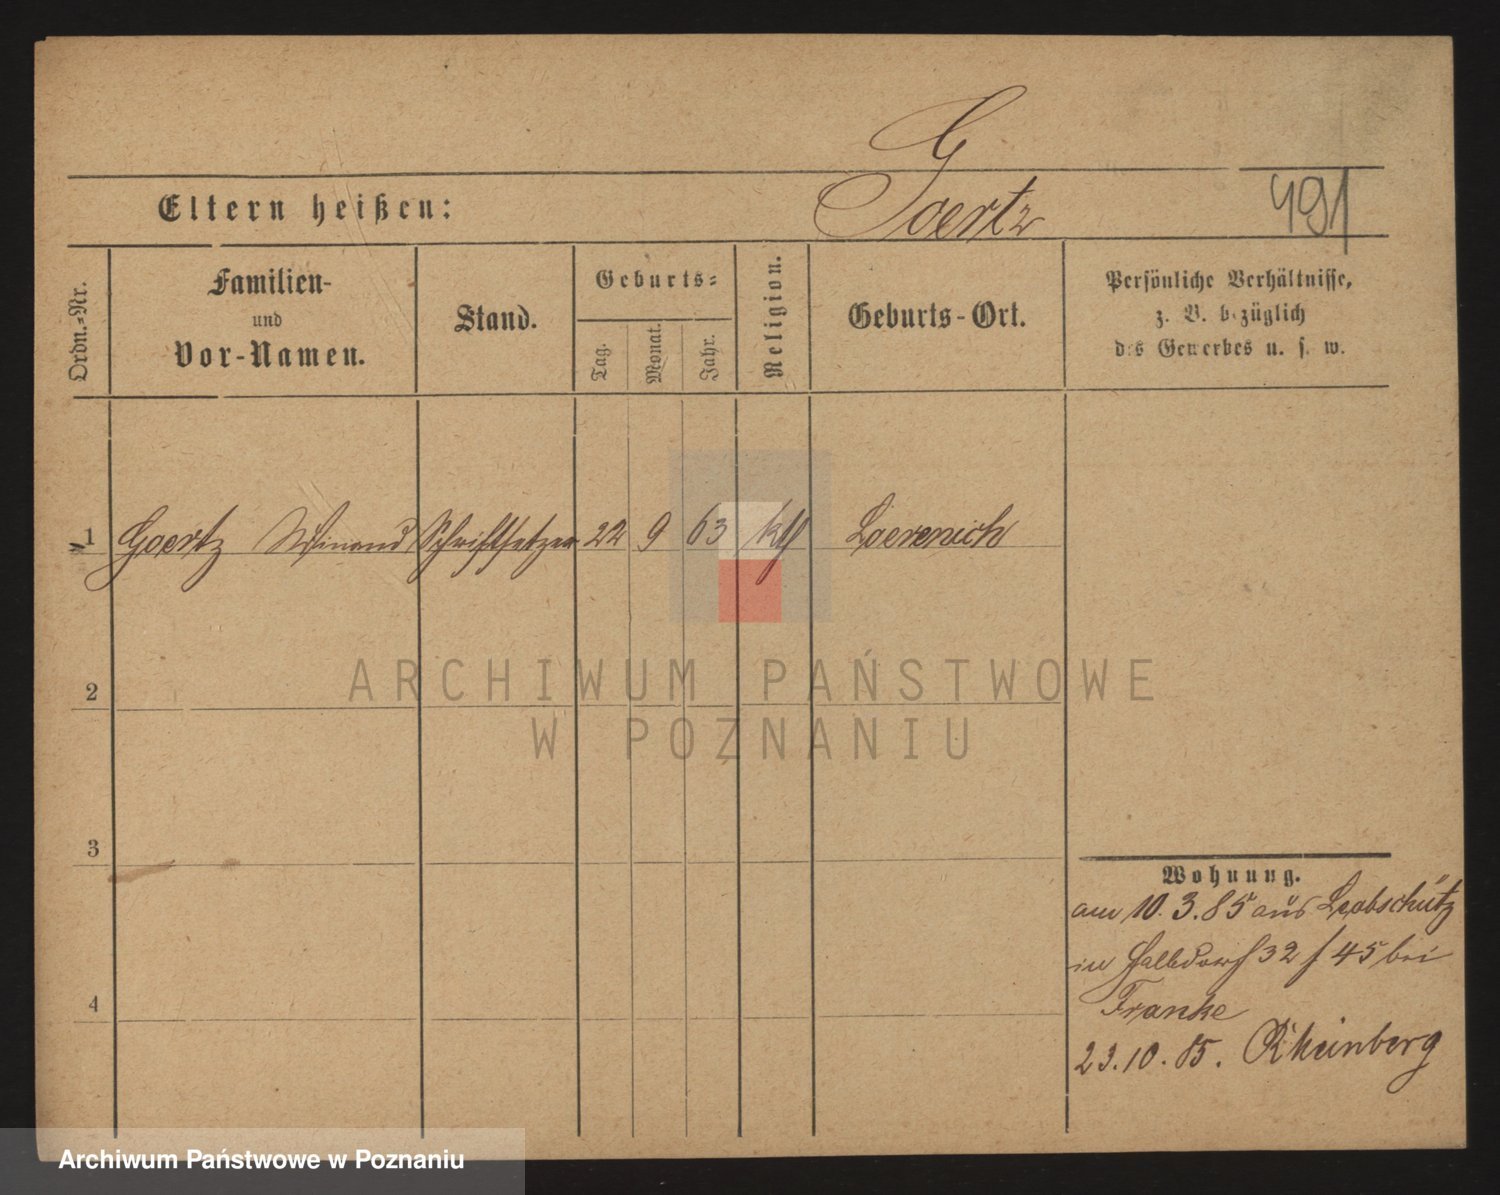 G
Eltern heißen:
Goertz
491
Ordn.-Nr.
Familien-
und
Vor-Namen.
Stand.
Geburts-
Tag.
Monat.
Jahr.
Religion.
Geburts-Ort.
Persönliche Verhältnisse,
z. B. bezüglich
des Gewerbes u. s. w.
1 Goertz Winand Schriftsetzer 22 9 63 kth Loevenich
2
3
4
Wohnung.
am 10.3.85 aus Leobschütz
in Halbdorf 32 / 45 bei
Franke
23.10.85. Rheinberg
ARCHIWUM PAŃSTWOWE
W POZNANIU
Archiwum Państwowe w Poznaniu